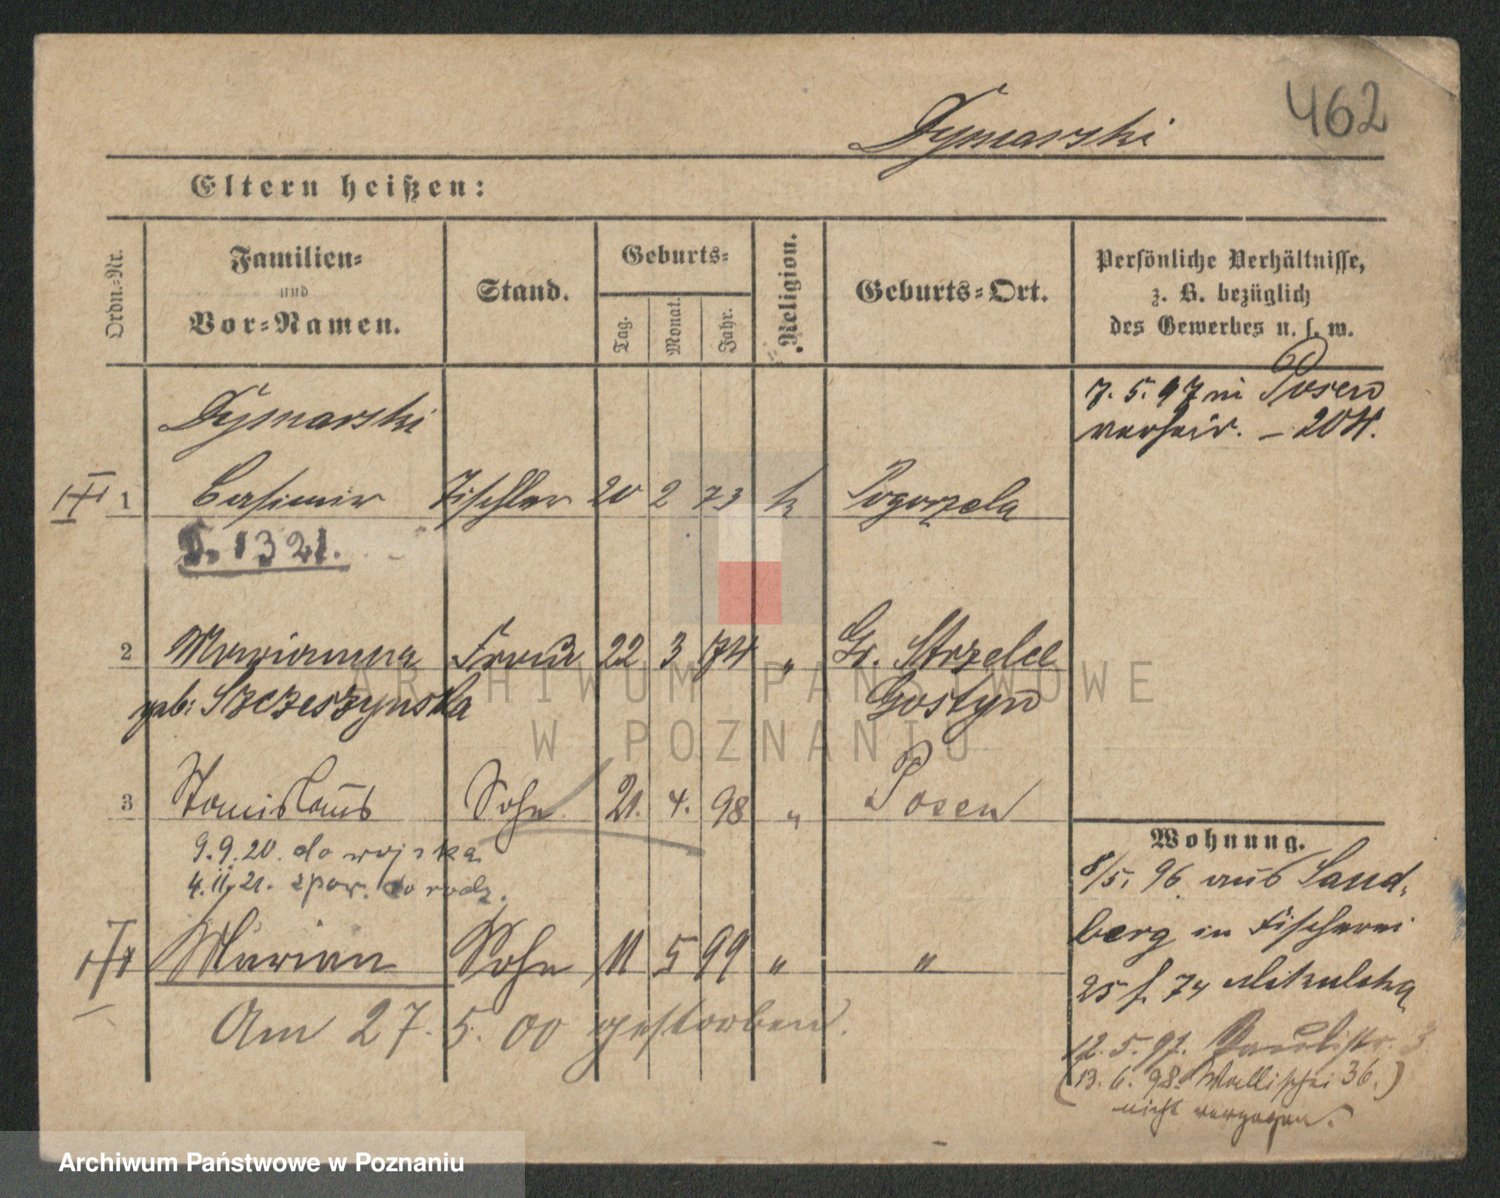 462
Dymarski
Eltern heißen:
Ordn.-Nr.
Familien-
und
Vor-Namen.
Stand.
Geburts-
Tag.
Monat.
Jahr.
Religion.
Geburts-Ort.
Persönliche Verhältnisse,
z. B. bezüglich
des Gewerbes u. s. w.
Dymarski
7. 5. 97 in Posen
verheir. – 204.
1 Casimir Tischler 20 2 73 k Pogorzela
D. 1321.
2 Marianna Frau 22 3 74 " Gr. Strzelce
geb: Szczeszynska Gostyn
3 Stanislaus Sohn 21. 4. 98 " Posen
9.9.20. do wojska
4.11.21. zpow. do rodz.
Marian Sohn 11 5 99 " "
Am 27. 5. 00 gestorben.
Wohnung.
8/5. 96 aus Sand-
berg in Fischerei
25 f. 74 Mikulska
12. 5. 97. Paulistr. 3
(13. 6. 98. Wallischei 36.)
nicht verzogen.
ARCHIWUM PAŃSTWOWE
W POZNANIU
Archiwum Państwowe w Poznaniu